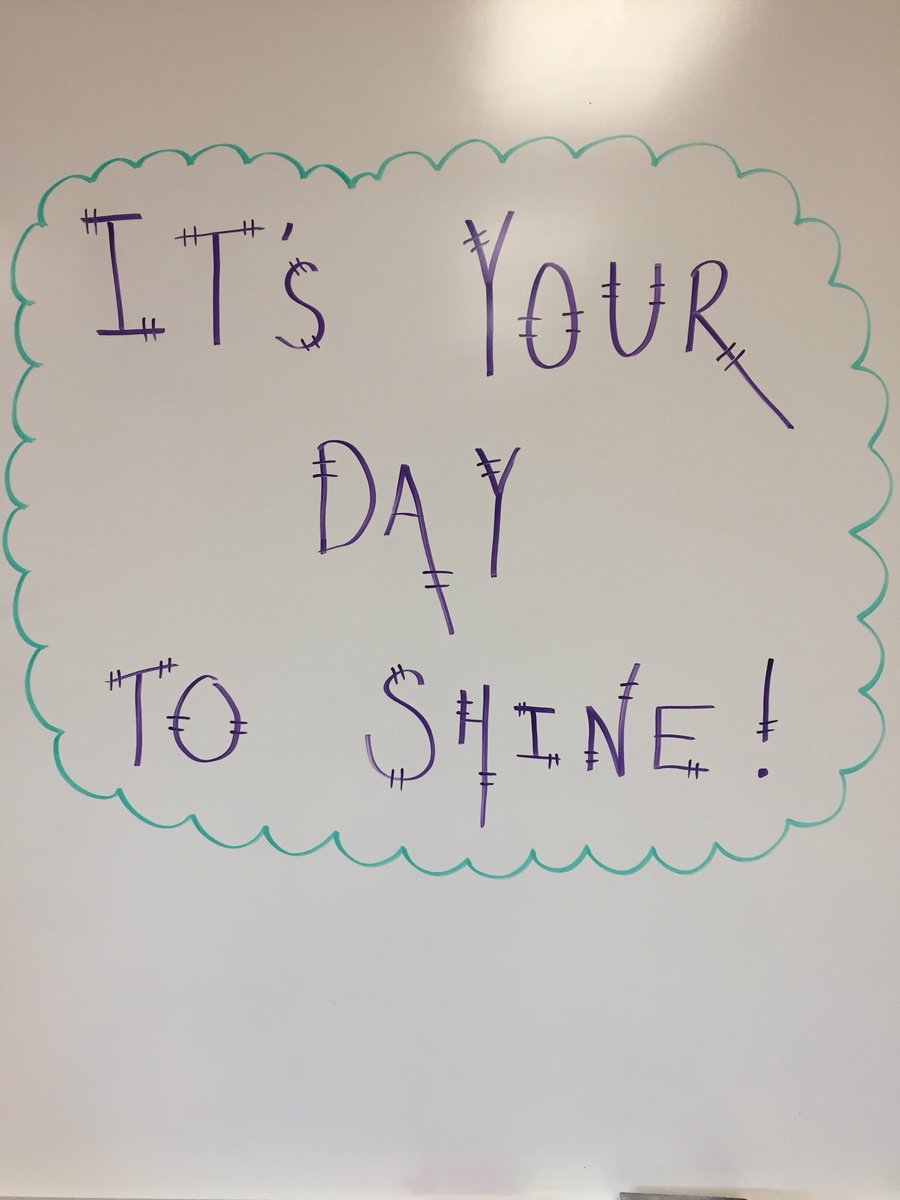 IT'S YOUR
DAY
TO SHINE!